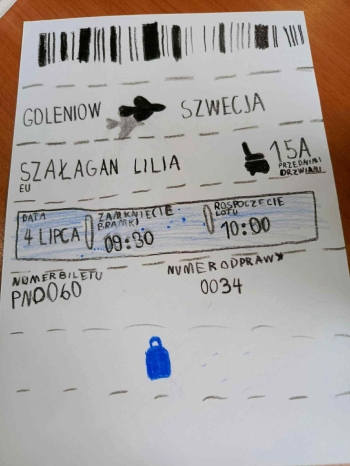 GOLENIOW SZWECJA
SZAŁAGAN LILIA
EU
15A
PRZEDNIMI
DRZWIAMI
DATA
4 LIPCA
ZAMKNIĘCIE
BRAMKI
09:30
ROSPOCZECIE
LOTU
10:00
NUMER BILETU
PNO060
NUMER ODPRAWY
0034